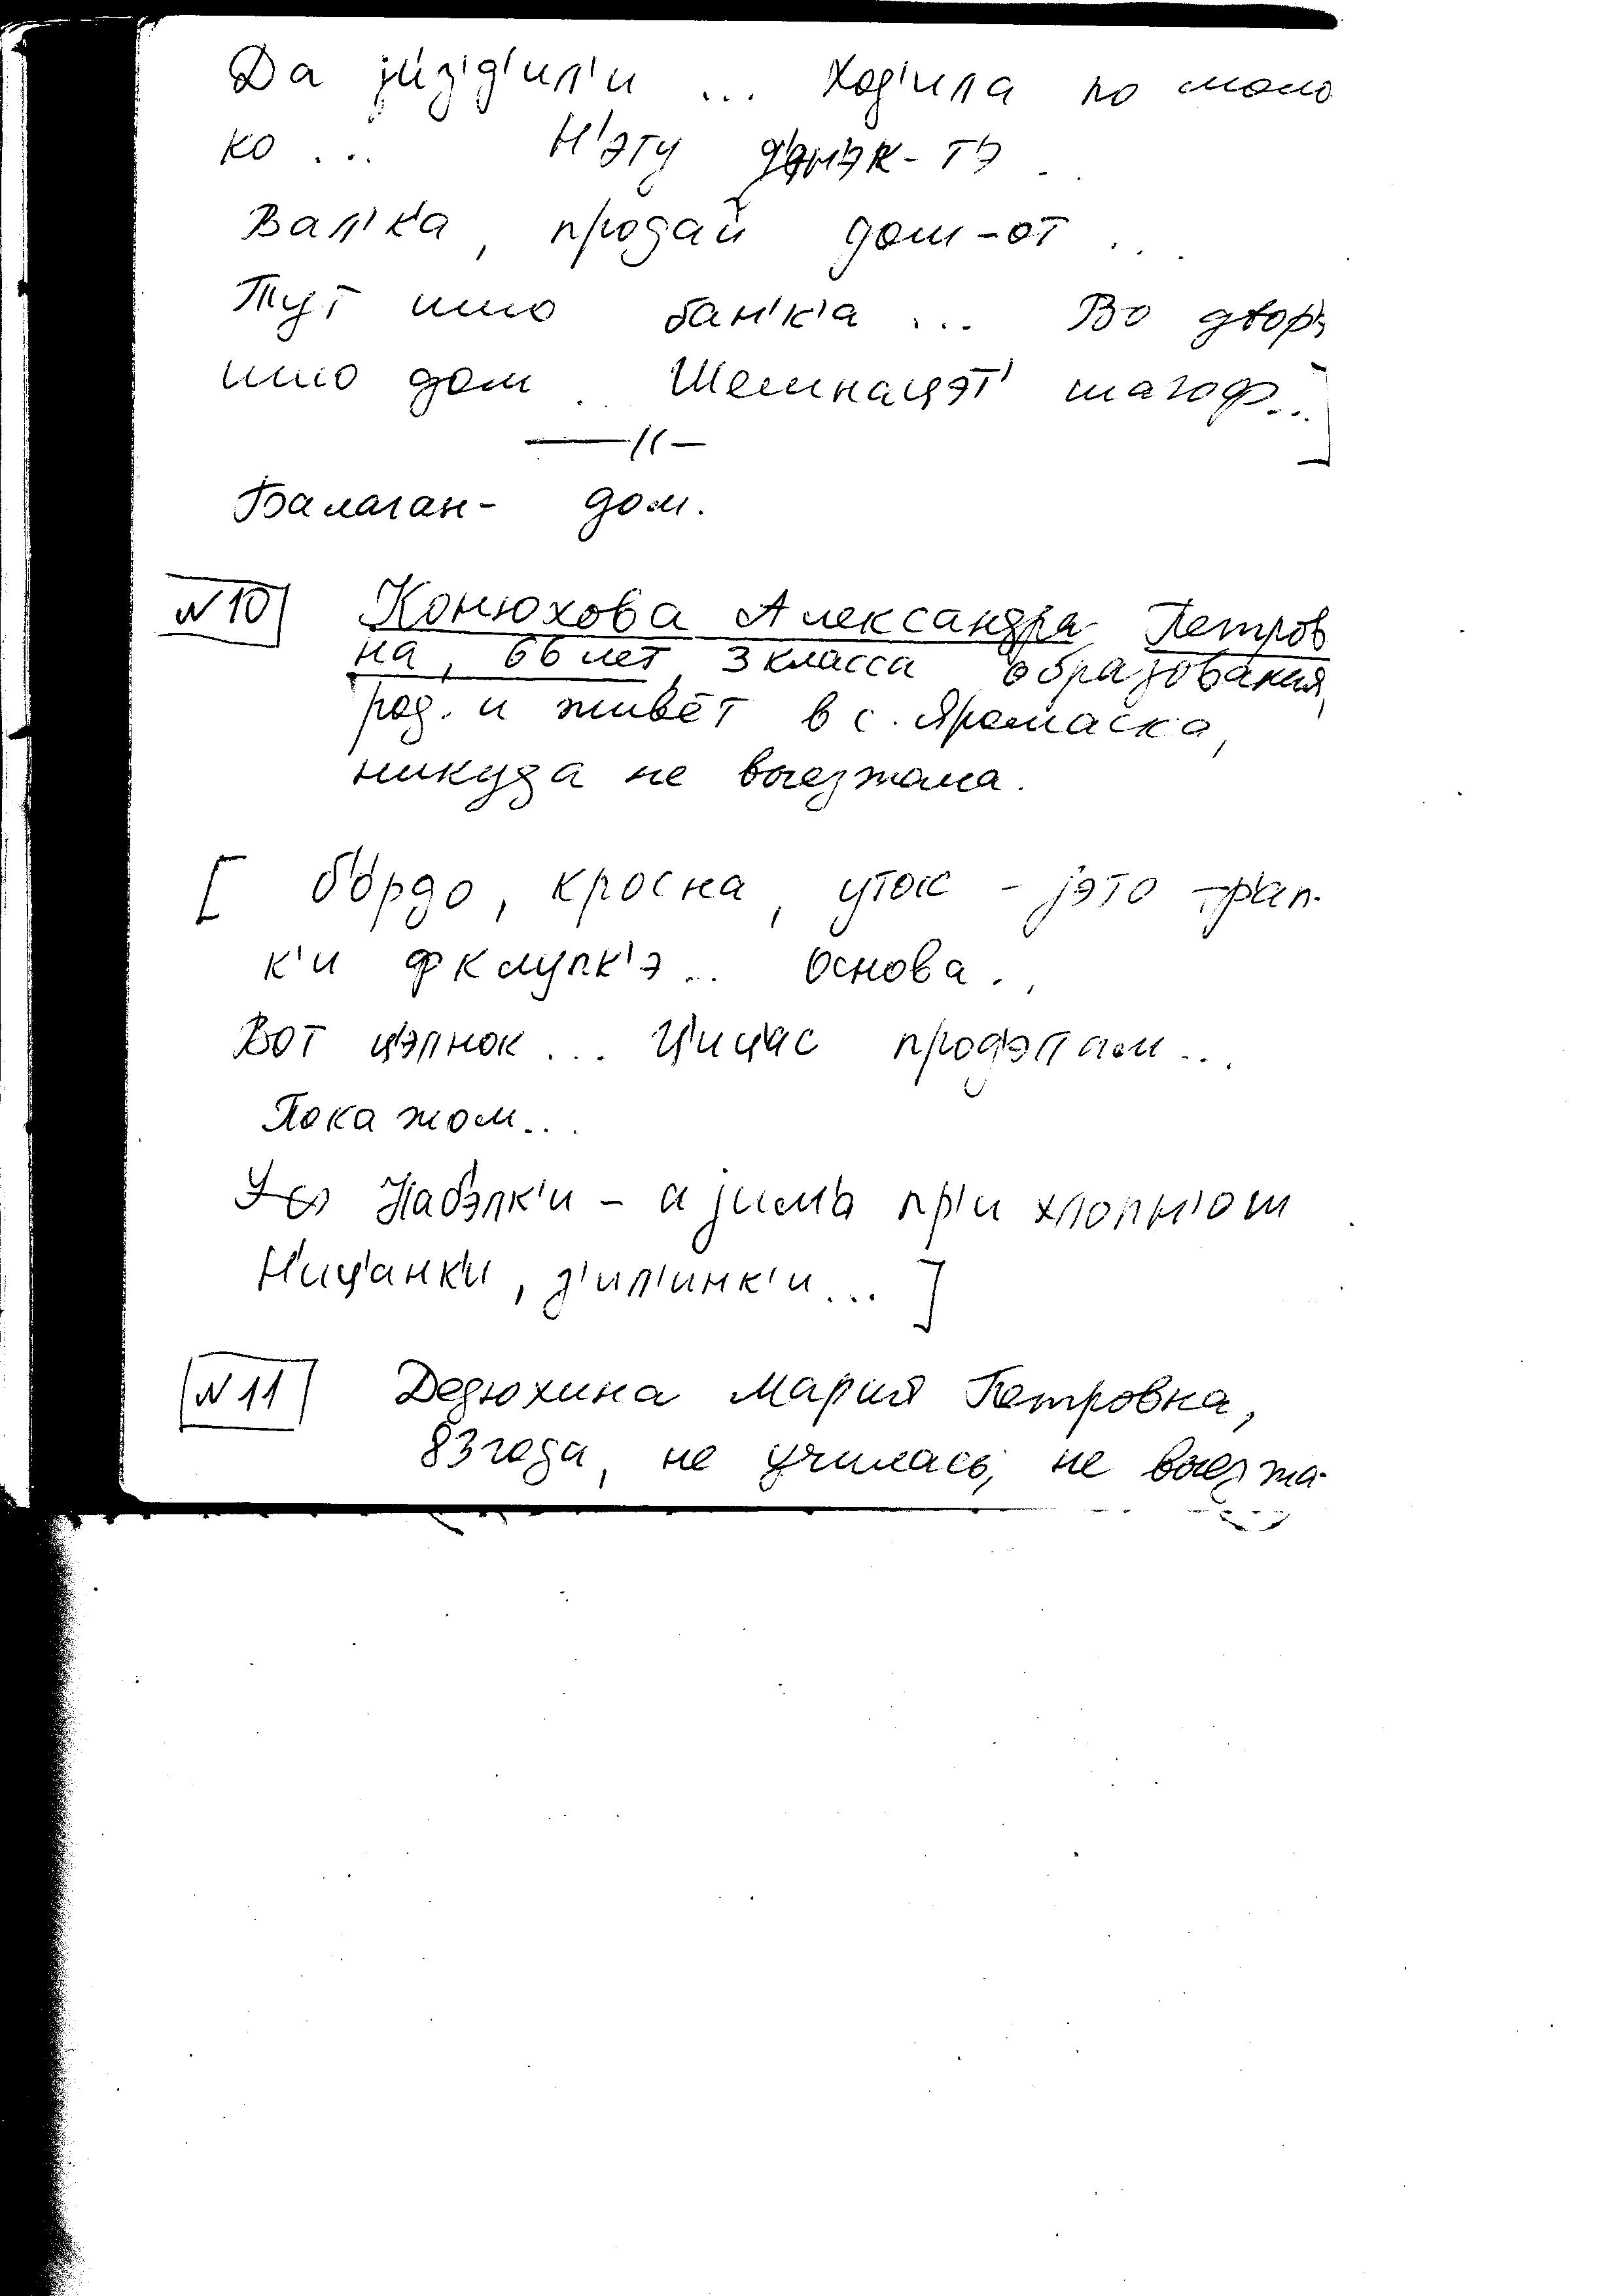 Да јиз'д'ил'и ... Ход'ила по моло
ко ... Н'эту д'энэк-тэ ..
Вал'к'а, продай дом-от ...
Тут ишо бан'к'а ... Во двор'э
ишо дом .. Шемнацэт' шагоф...]
——//—
Балаган- дом.
N10 Конюхова Александра Петров
на, 66 лет, 3 класса образования,
род. и живёт в с. Яромаска,
никуда не выезжала.
[ б'ордо, кросна, уток - јэто тр'ап-
к'и фклупк'э ... Основа ..
Вот цэлнок ... Ц'иц'ас прод'элам ...
Покажом ...
Набэлк'и - а јима пр'и хлопн'ош
Н'иц'анк'и, з'ил'инк'и ... ]
N11 Дедюхина Мария Петровна,
83 года, не училась, не выезжа-